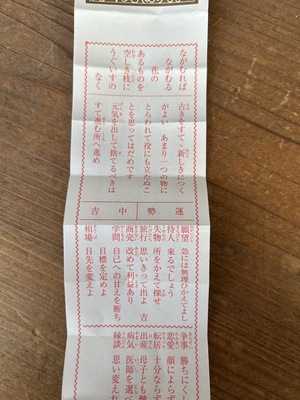 ながむれば
ながむる
花の
あるものを
空しき枝に
うぐいすの
なく
古きをすて、新しきにつく
がよい あまり一つの物に
とらわれて役にも立たぬこ
とを思ってはだめです
元気を出して捨てるべきは
すて進む所へ進め
運勢 中吉
願望 急には無理ひかえてよし
待人 来るでしょう
失物 所をかえて探せ
旅行 思いきって出よ 吉
商売 改めて利益あり
学問 自己への甘えを断ち
目標を定めよ
相場 目先を変えよ
争事 勝ちにく
恋愛 顔によらず
転居 十分ならず
出産 母子とも健
病気 医師を選
縁談 思い変えれ